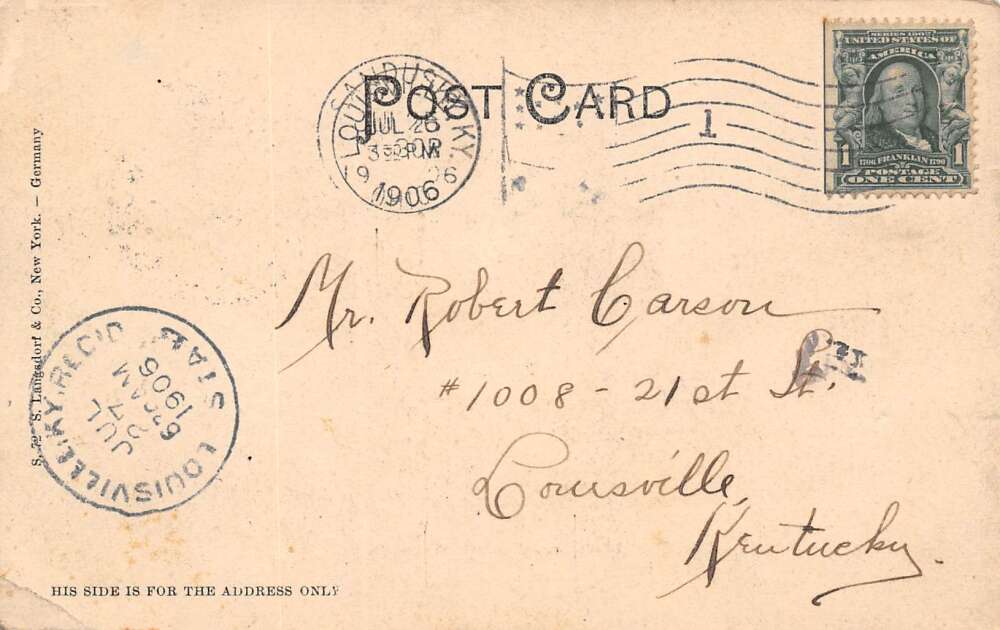 POST CARD
SANDUSKY
LOUISVILLE KY.
JUL 26
3 PM
1906
1
SERIES 1902
UNITED STATES OF
AMERICA
1706 FRANKLIN 1790
POSTAGE
1 ONE CENT 1
Mr. Robert Carson
#1008 - 21st St.
Louisville,
Kentucky
LOUISVILLE, KY. REC'D.
JUL
AM
1906
STA.
S. Langsdorf & Co., New York. — Germany
HIS SIDE IS FOR THE ADDRESS ONLY